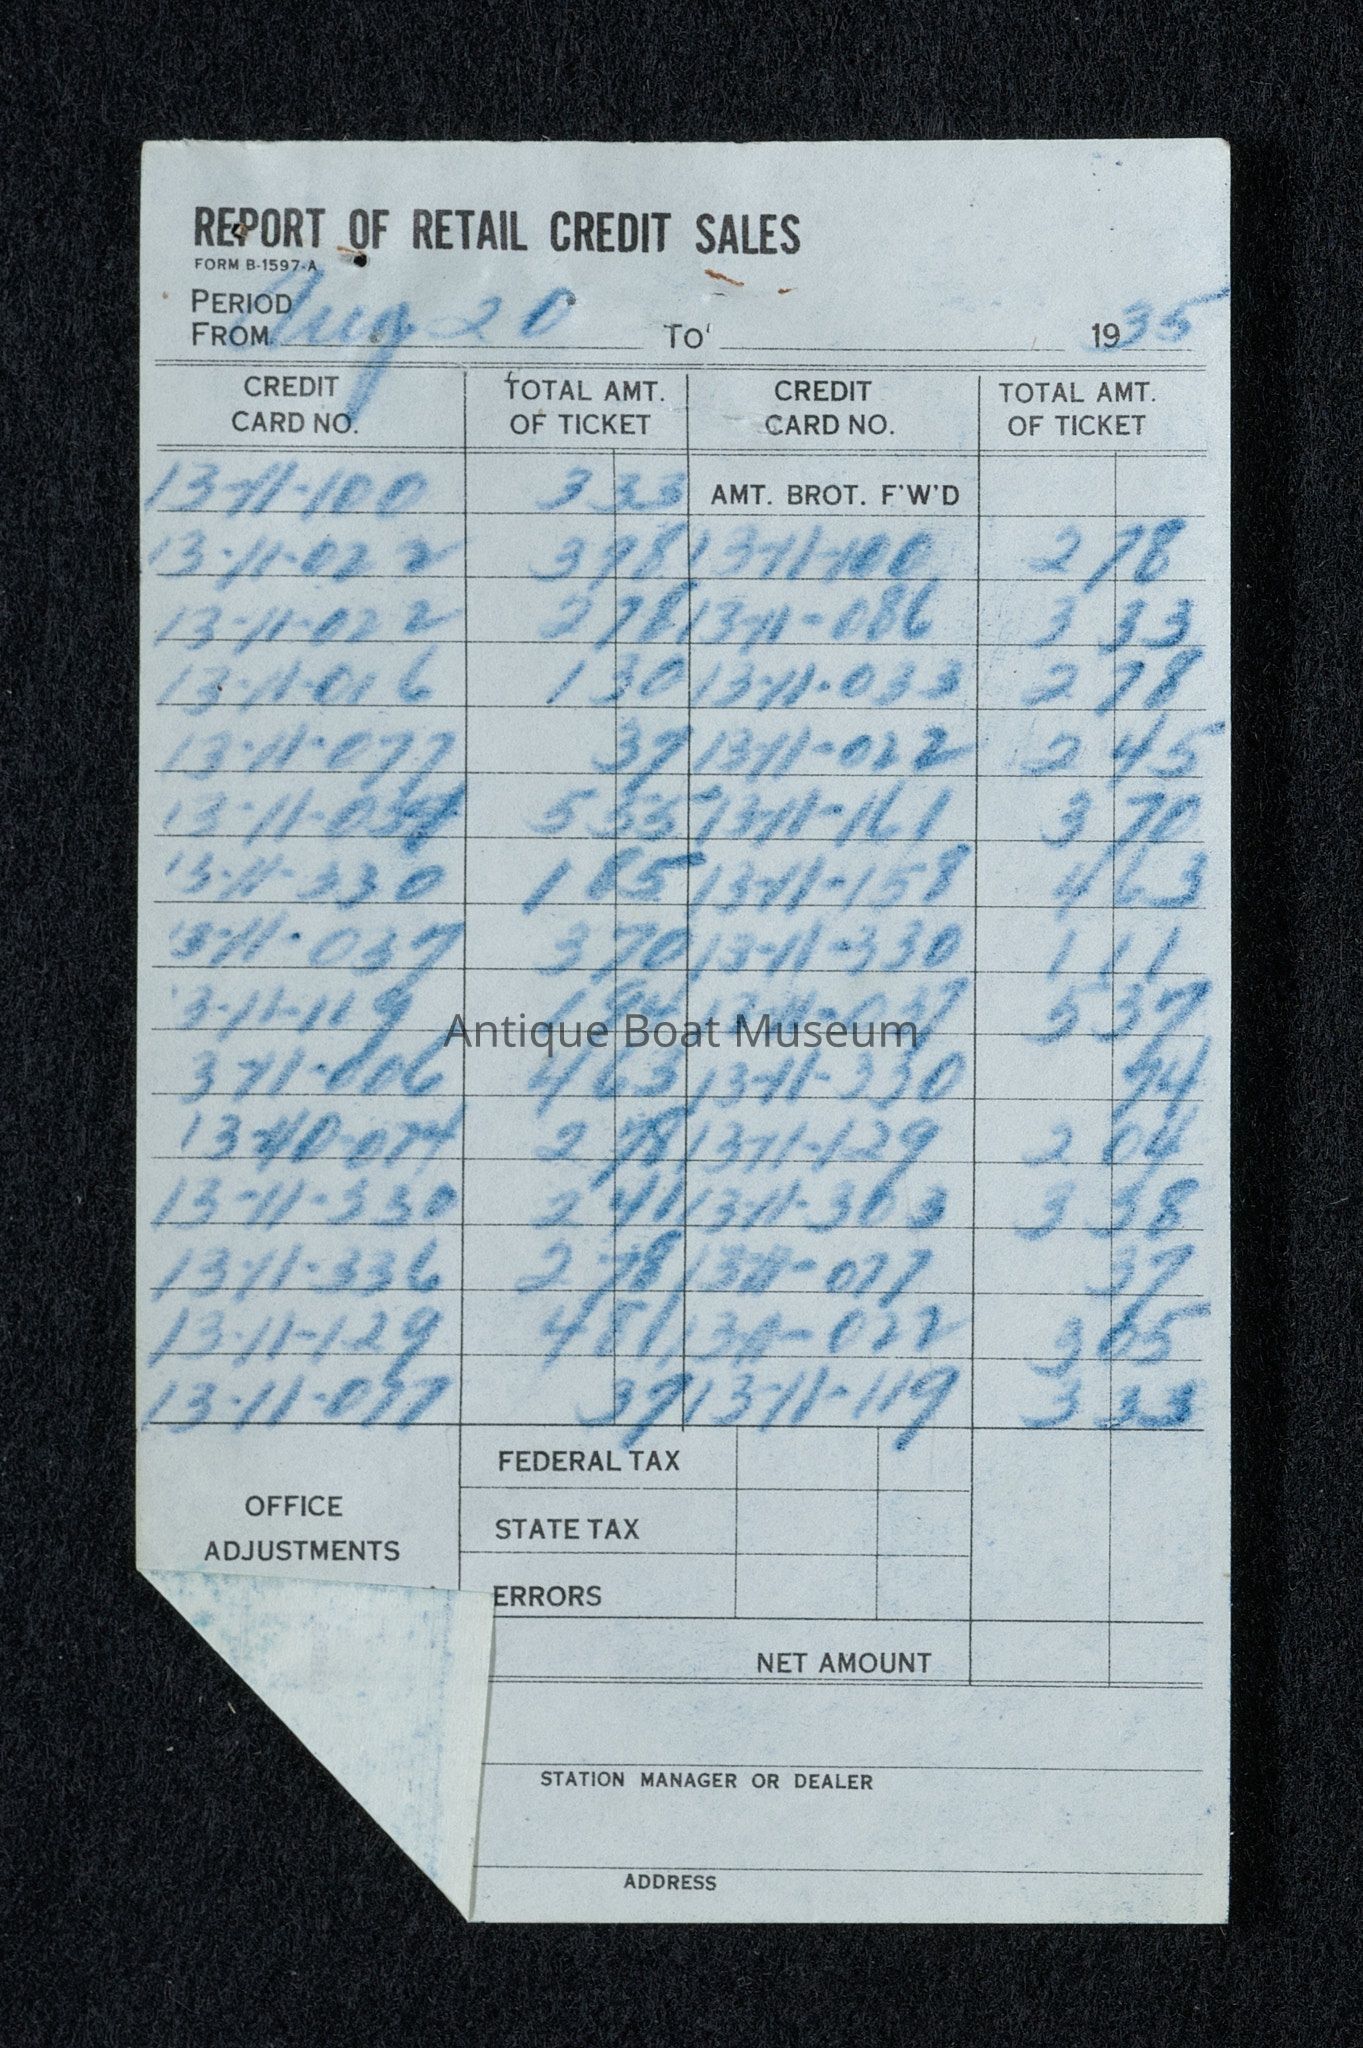 REPORT OF RETAIL CREDIT SALES
FORM B-1597-A
PERIOD
FROM Aug 20 TO 1935
CREDIT CARD NO. TOTAL AMT. OF TICKET CREDIT CARD NO. TOTAL AMT. OF TICKET
13-11-100 3 33 AMT. BROT. F'W'D
13-11-022 3 98 13-11-100 2 78
13-11-022 2 78 13-11-086 3 33
13-11-016 1 30 13-11-033 2 78
13-11-077 37 13-11-022 2 45
5 55 13-11-161 3 70
13-11-330 1 85 13-11-158 4 63
13-11-037 3 70 13-11-330 1 11
13-11-119 13-11-037 5 37
Antique Boat Museum
3-11-006 4 63 13-11-330
13-10-074 2 78 13-11-129 2 04
13-11-330 2 41 13-11-303 3 38
13-11-336 2 78 13-11-077 37
13-11-129 4 81 13-11-022 3 05
13-11-077 37 13-11-119 3 33
OFFICE ADJUSTMENTS
FEDERAL TAX
STATE TAX
ERRORS
NET AMOUNT
STATION MANAGER OR DEALER
ADDRESS